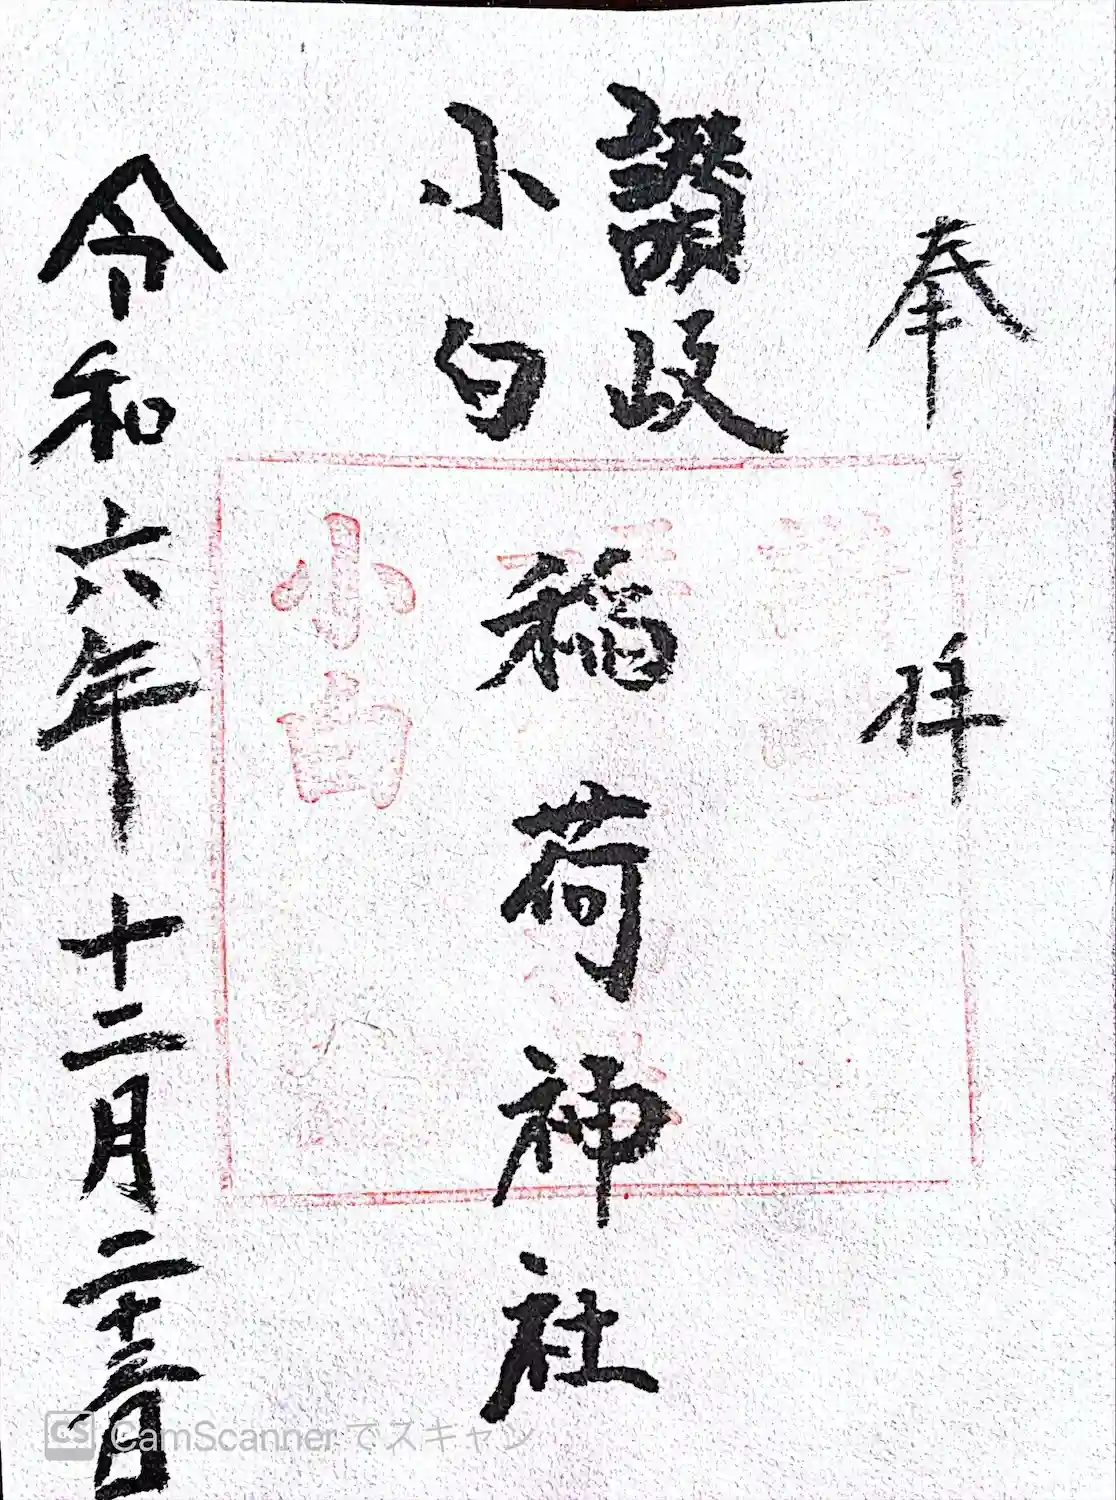 奉拝
讃岐
小白
稲荷神社
小白
令和六年十二月二十三日
CS CamScannerでスキャン